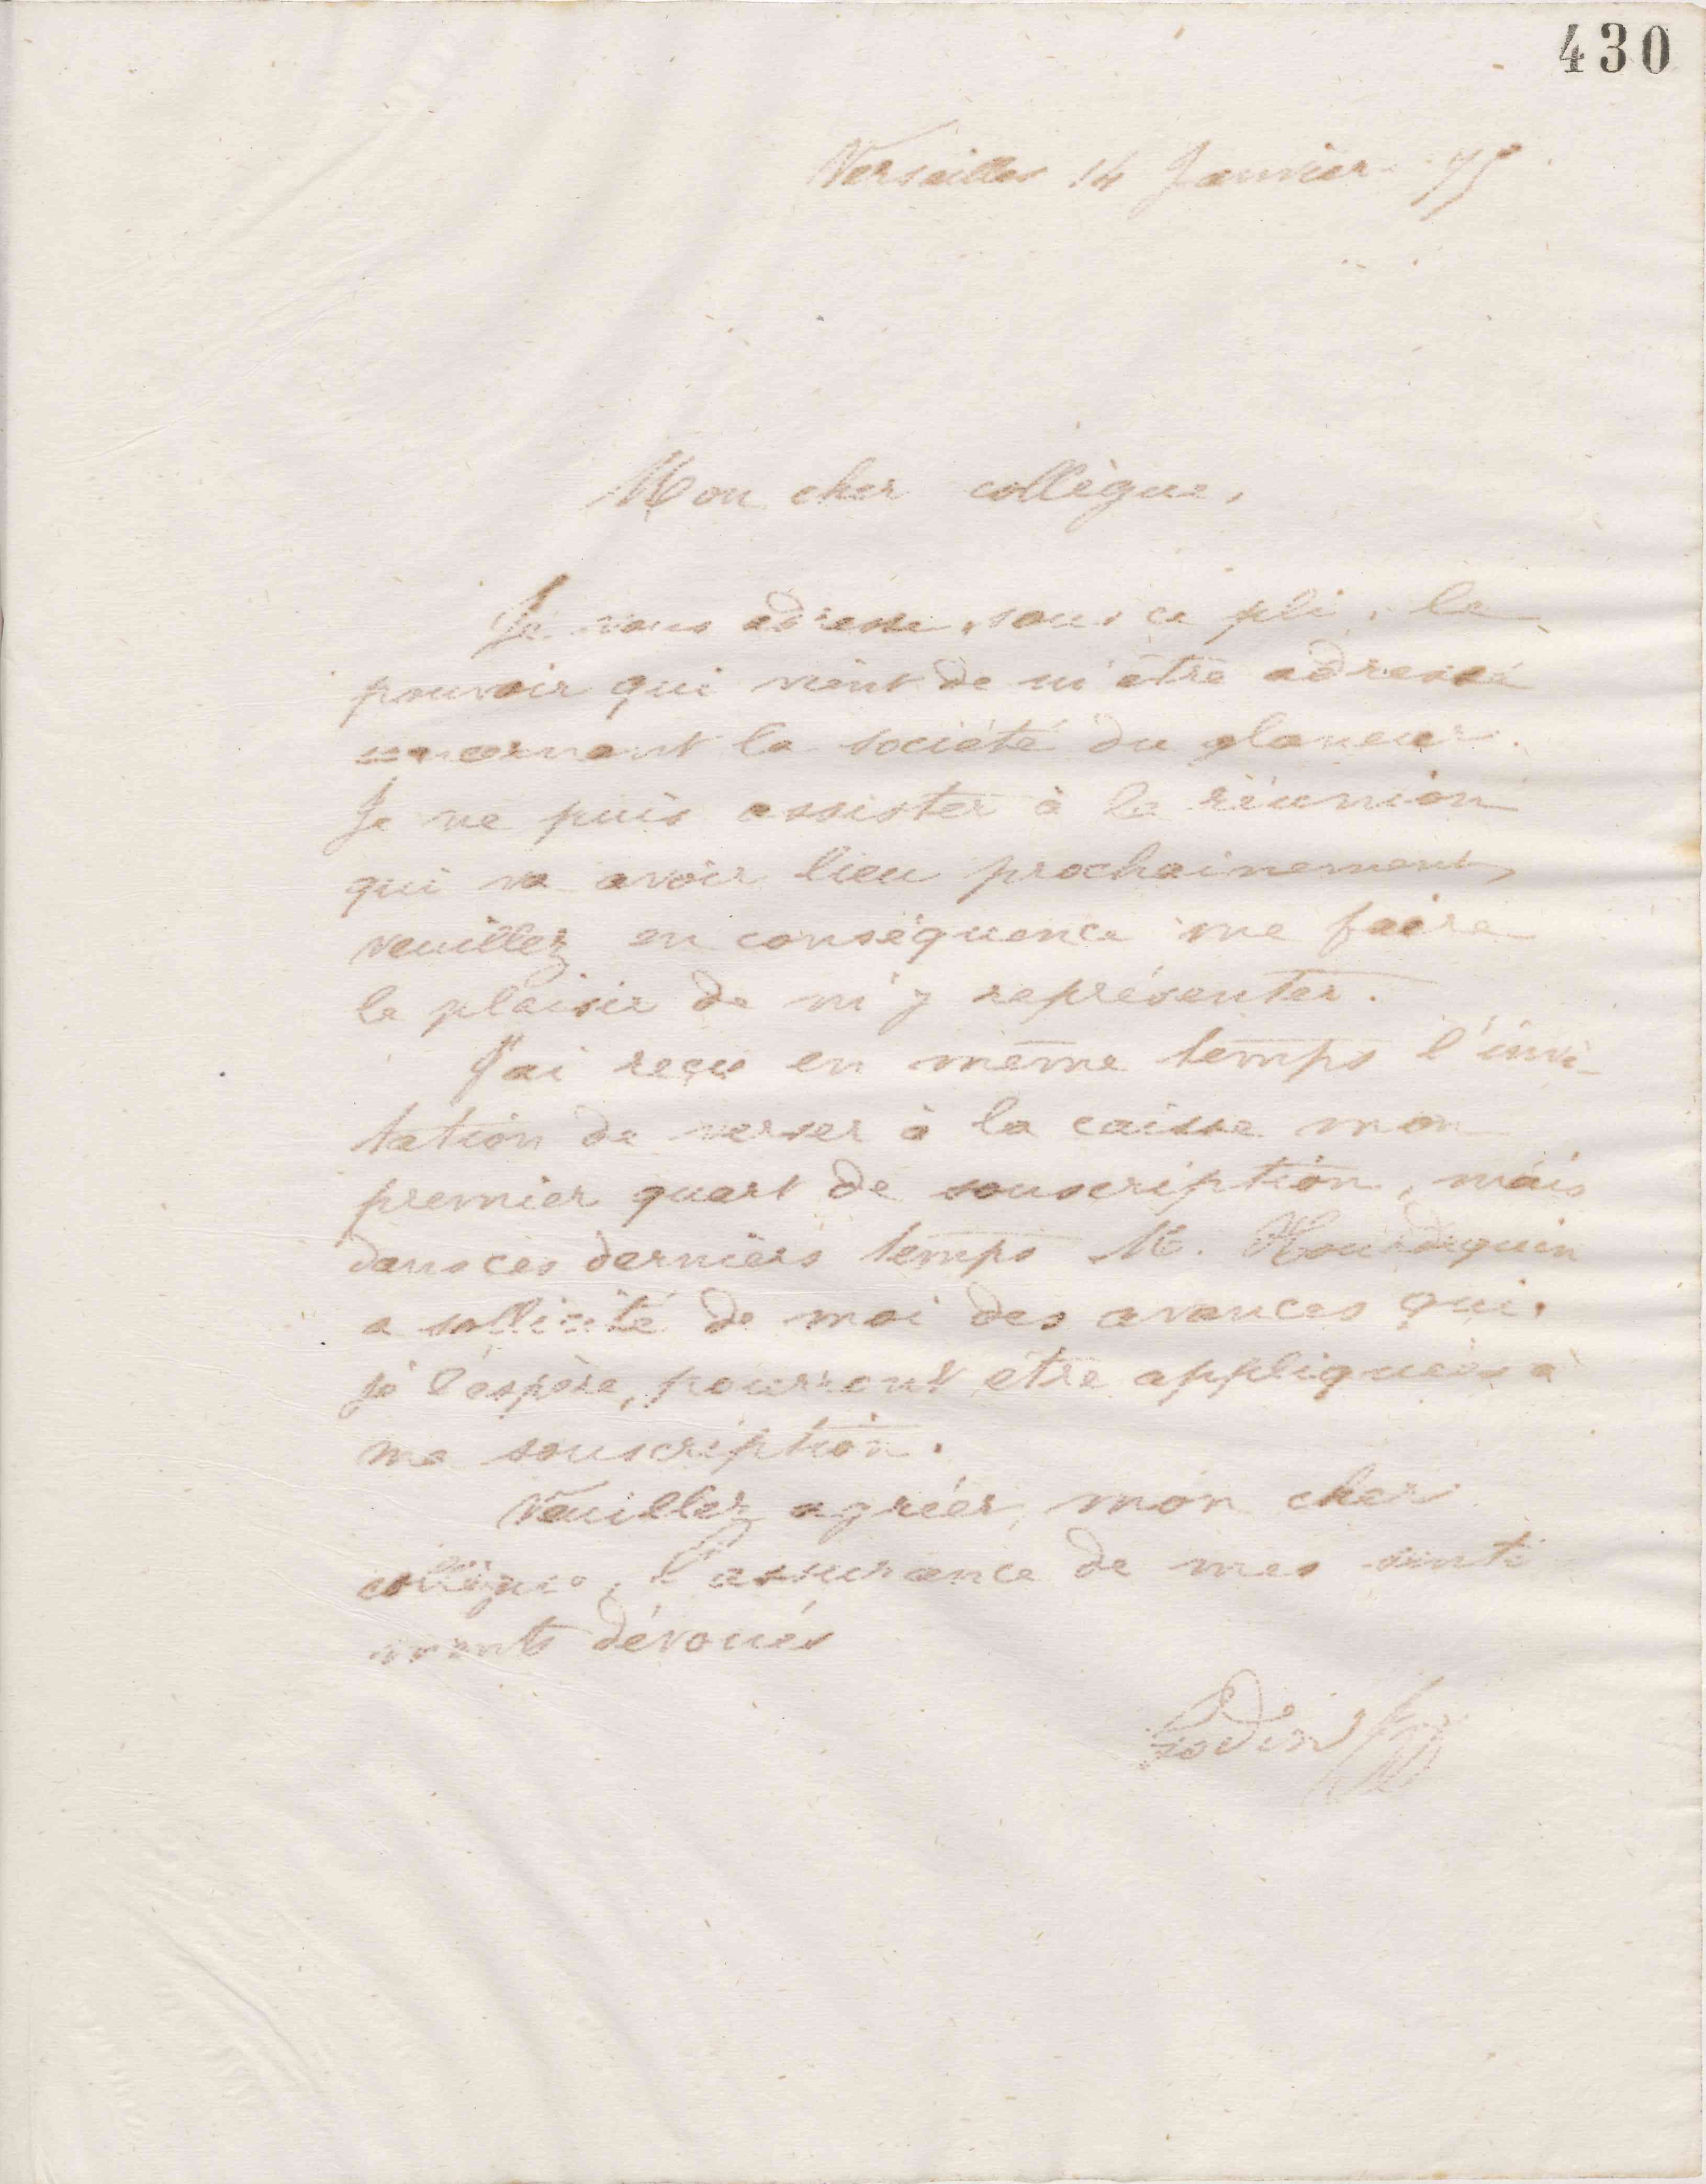 430
Versailles 14 Janvier 75
Mon cher collègue,
Je vous adresse, sous ce pli, le
pouvoir qui vient de m'être adressé
concernant la société du glaneur.
Je ne puis assister à la réunion
qui va avoir lieu prochainement,
veuillez en conséquence me faire
le plaisir de m'y représenter.
J'ai reçu en même temps l'invi-
tation de verser à la caisse mon
premier quart de souscription, mais
dans ces derniers temps M. Hourdequin
a sollicité de moi des avances qui,
je l'espère, pourront être appliquées à
ma souscription.
Veuillez agréer, mon cher
collègue, l'assurance de mes senti
ments dévoués
Godin